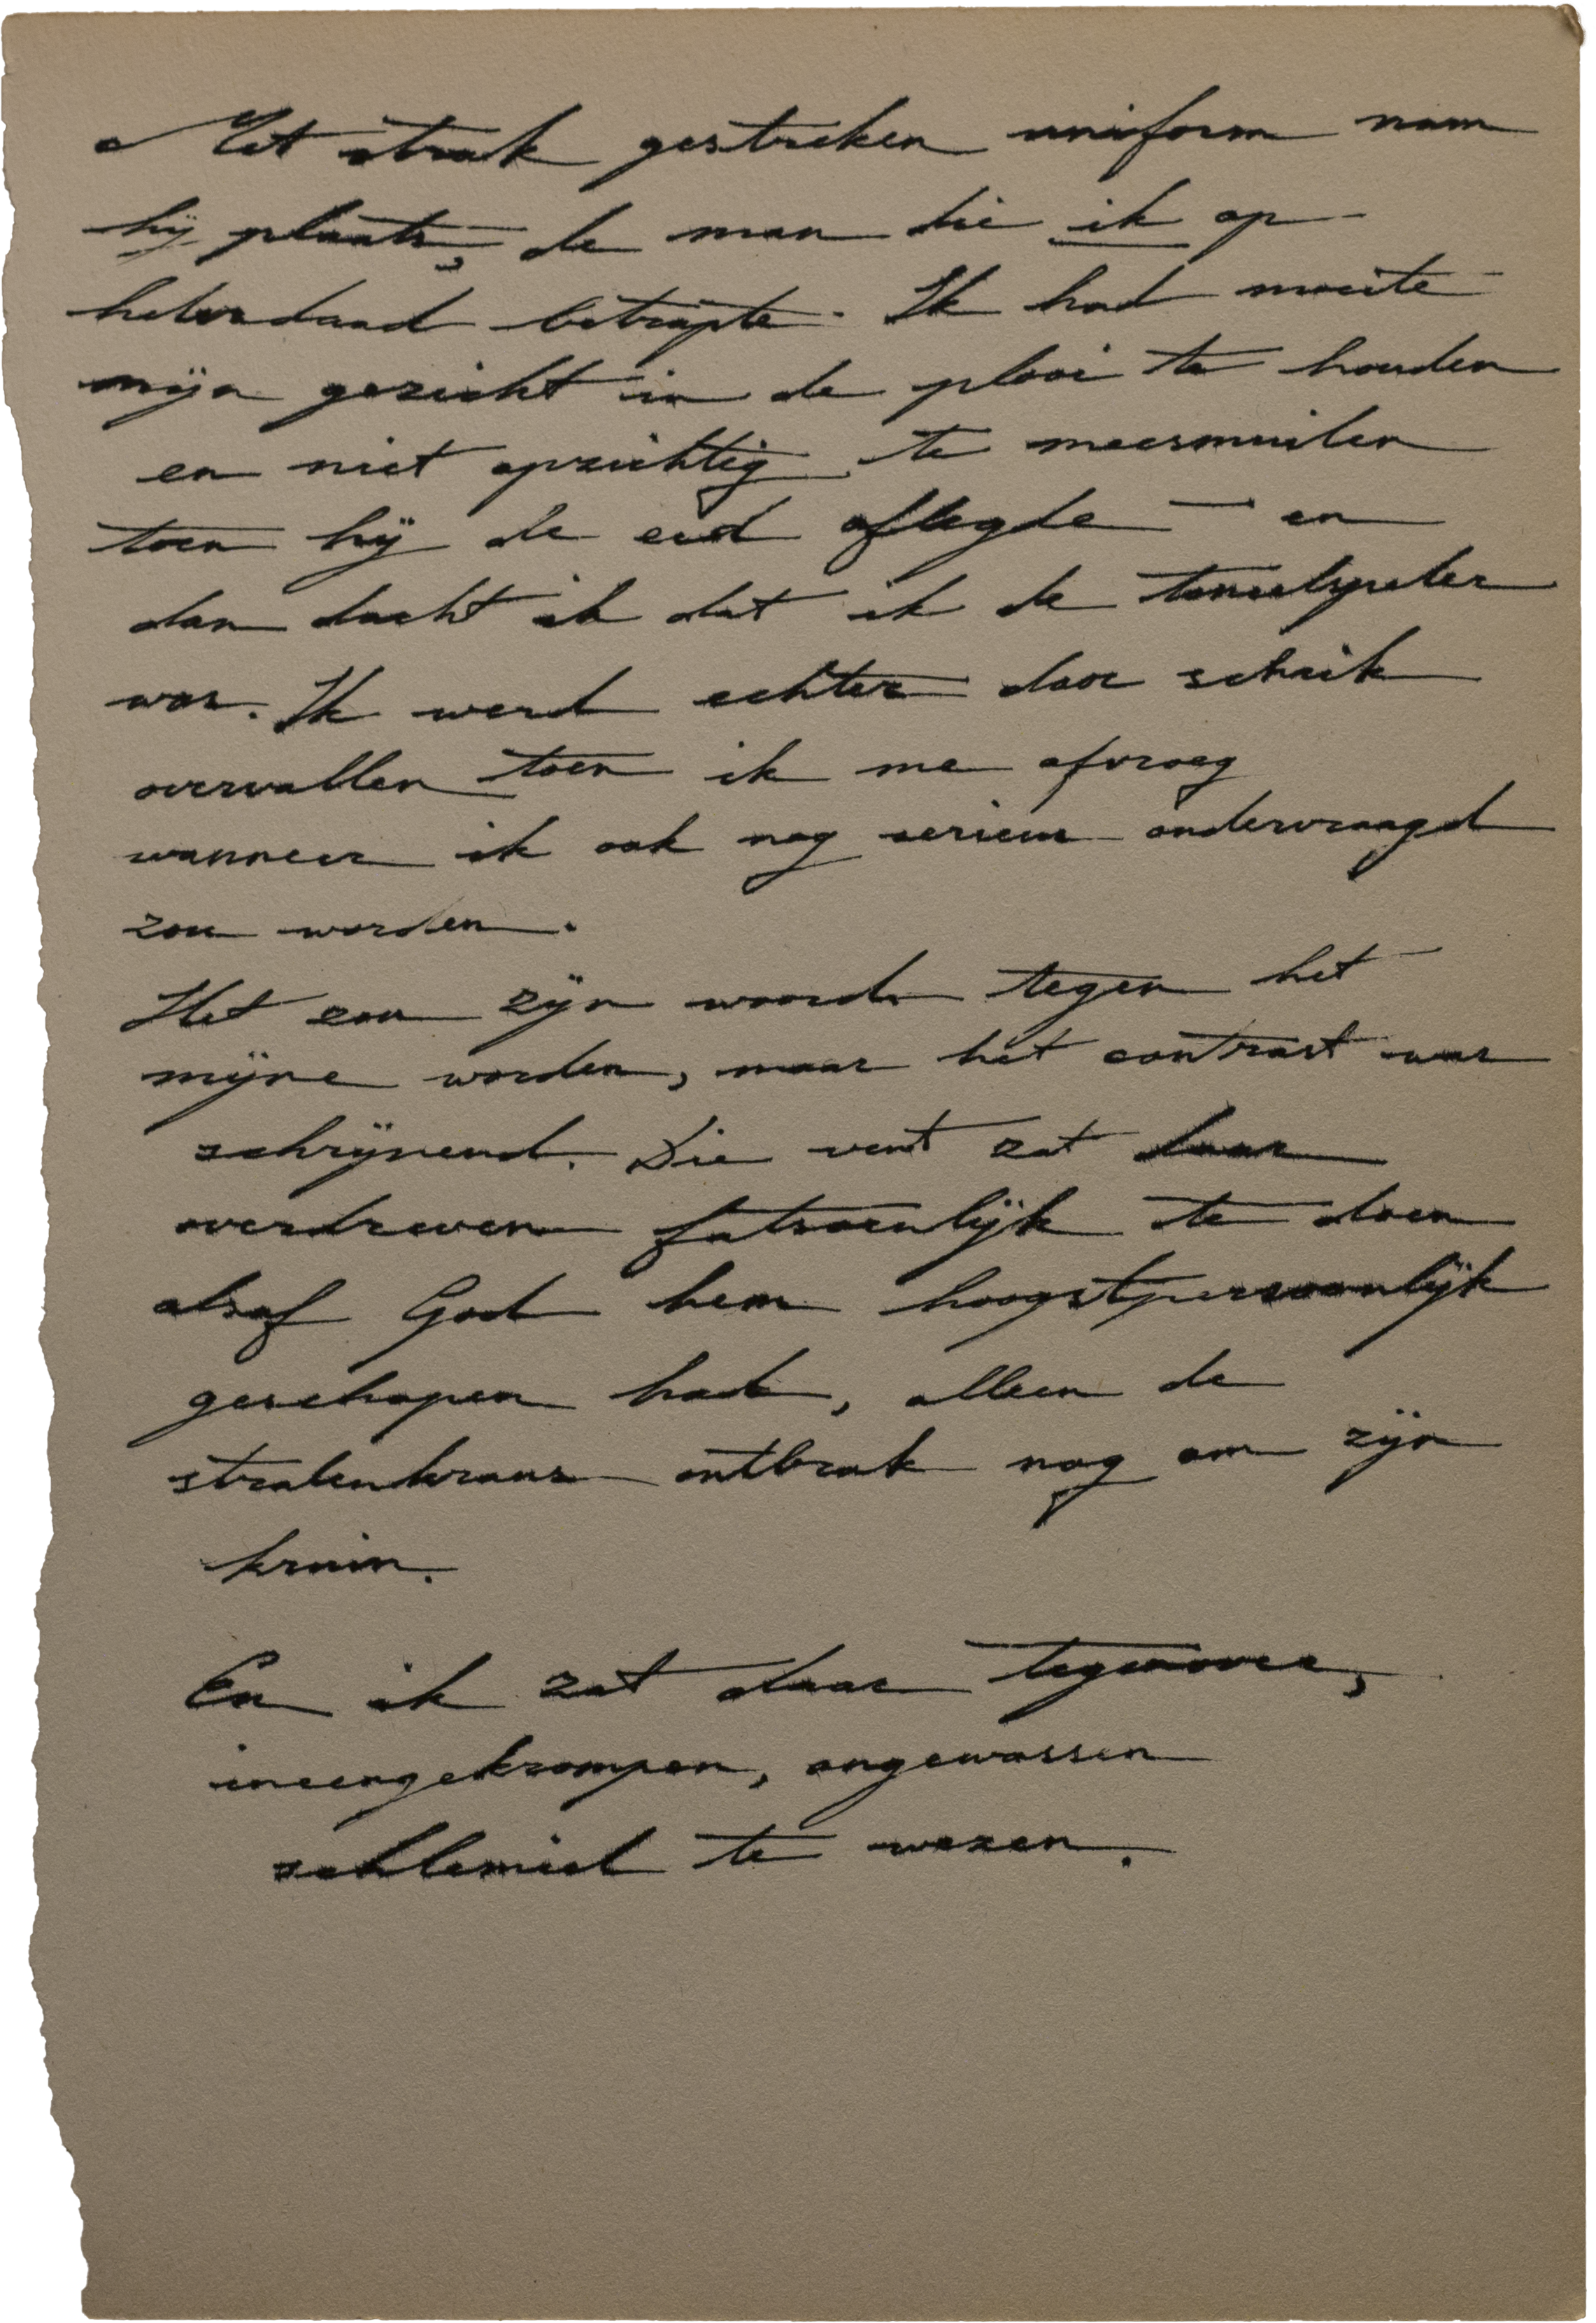 Met strak gestreken uniform nam
hij plaats, de man die ik op
heterdaad betrapte. Ik had moeite
mijn gezicht in de plooi te houden
en niet opzichtig te meesmuilen
toen hij de eed aflegde – en
dan dacht ik dat ik de toneelspeler
was. Ik werd echter door schrik
overvallen toen ik me afvroeg
wanneer ik ook nog serieus ondervraagd
zou worden.
Het zou zijn woord tegen het
mijne worden, maar het contrast was
schrijnend. Die vent zat daar
overdreven fatsoenlijk te doen
alsof God hem hoogstpersoonlijk
geschapen had, alleen de
stralenkrans ontbrak nog om zijn
kruin.
En ik zat daar tegenover,
ineengekrompen, ongewassen
schlemiel te wezen.